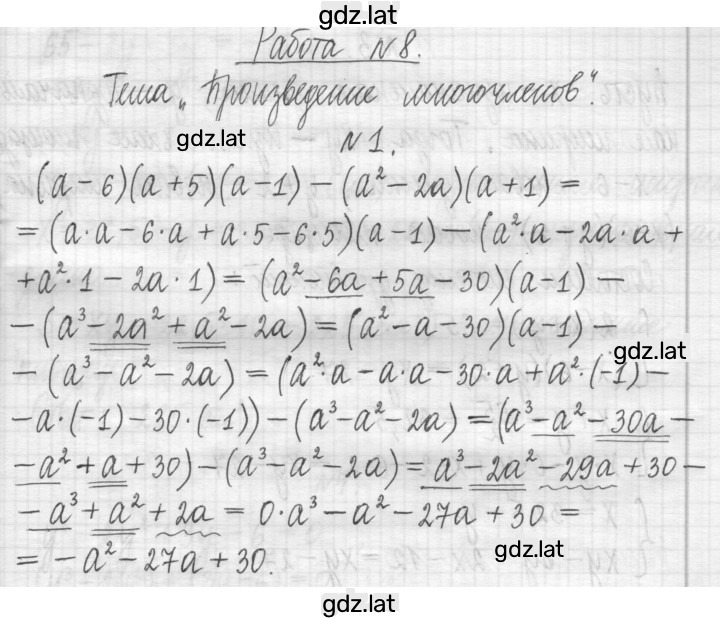 gdz.lat
Работа №8.
Тема „Произведение многочленов“.
gdz.lat
№1.
(a-6)(a+5)(a-1)-(a²-2a)(a+1)=
=(a·a-6·a+a·5-6·5)(a-1)-(a²·a-2a·a+
+a²·1-2a·1)=(a²-6a+5a-30)(a-1)-
-(a³-2a²+a²-2a)=(a²-a-30)(a-1)-
gdz.lat
-(a³-a²-2a)=(a²·a-a·a-30·a+a²·(-1)-
-a·(-1)-30·(-1))-(a³-a²-2a)=(a³-a²-30a-
-a²+a+30)-(a³-a²-2a)=a³-2a²-29a+30-
-a³+a²+2a=0·a³-a²-27a+30=
gdz.lat
=-a²-27a+30.
gdz.lat